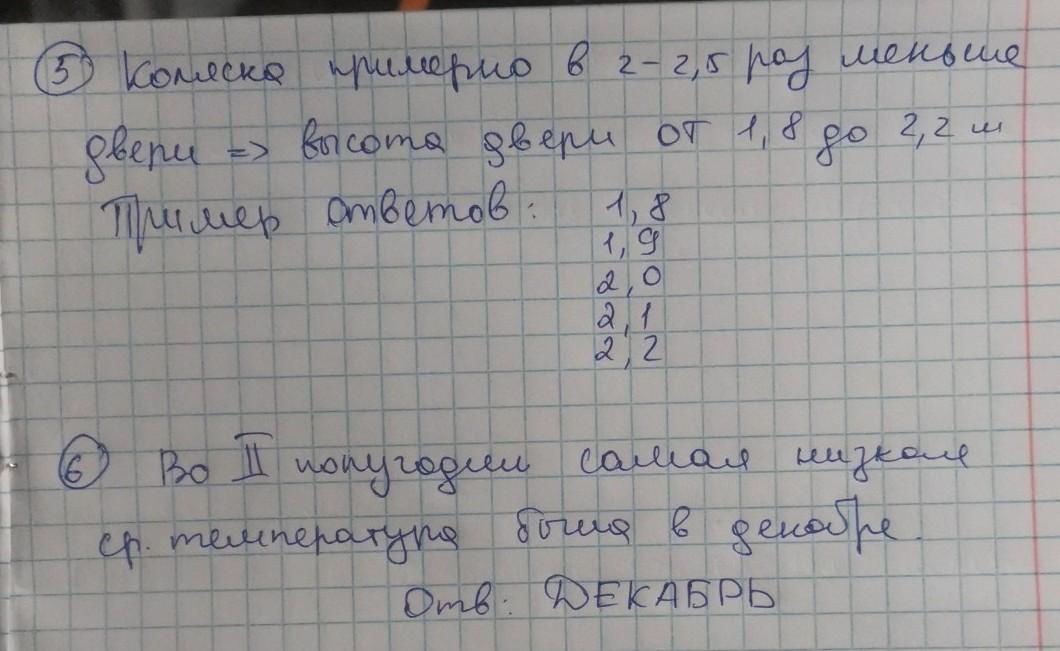 5 Коляска примерно в 2-2,5 раз меньше
двери => высота двери от 1,8 до 2,2 м
Пример ответов: 1,8
1,9
2,0
2,1
2,2
6 Во II полугодии самая низкая
ср. температура была в декабре.
Отв: ДЕКАБРЬ